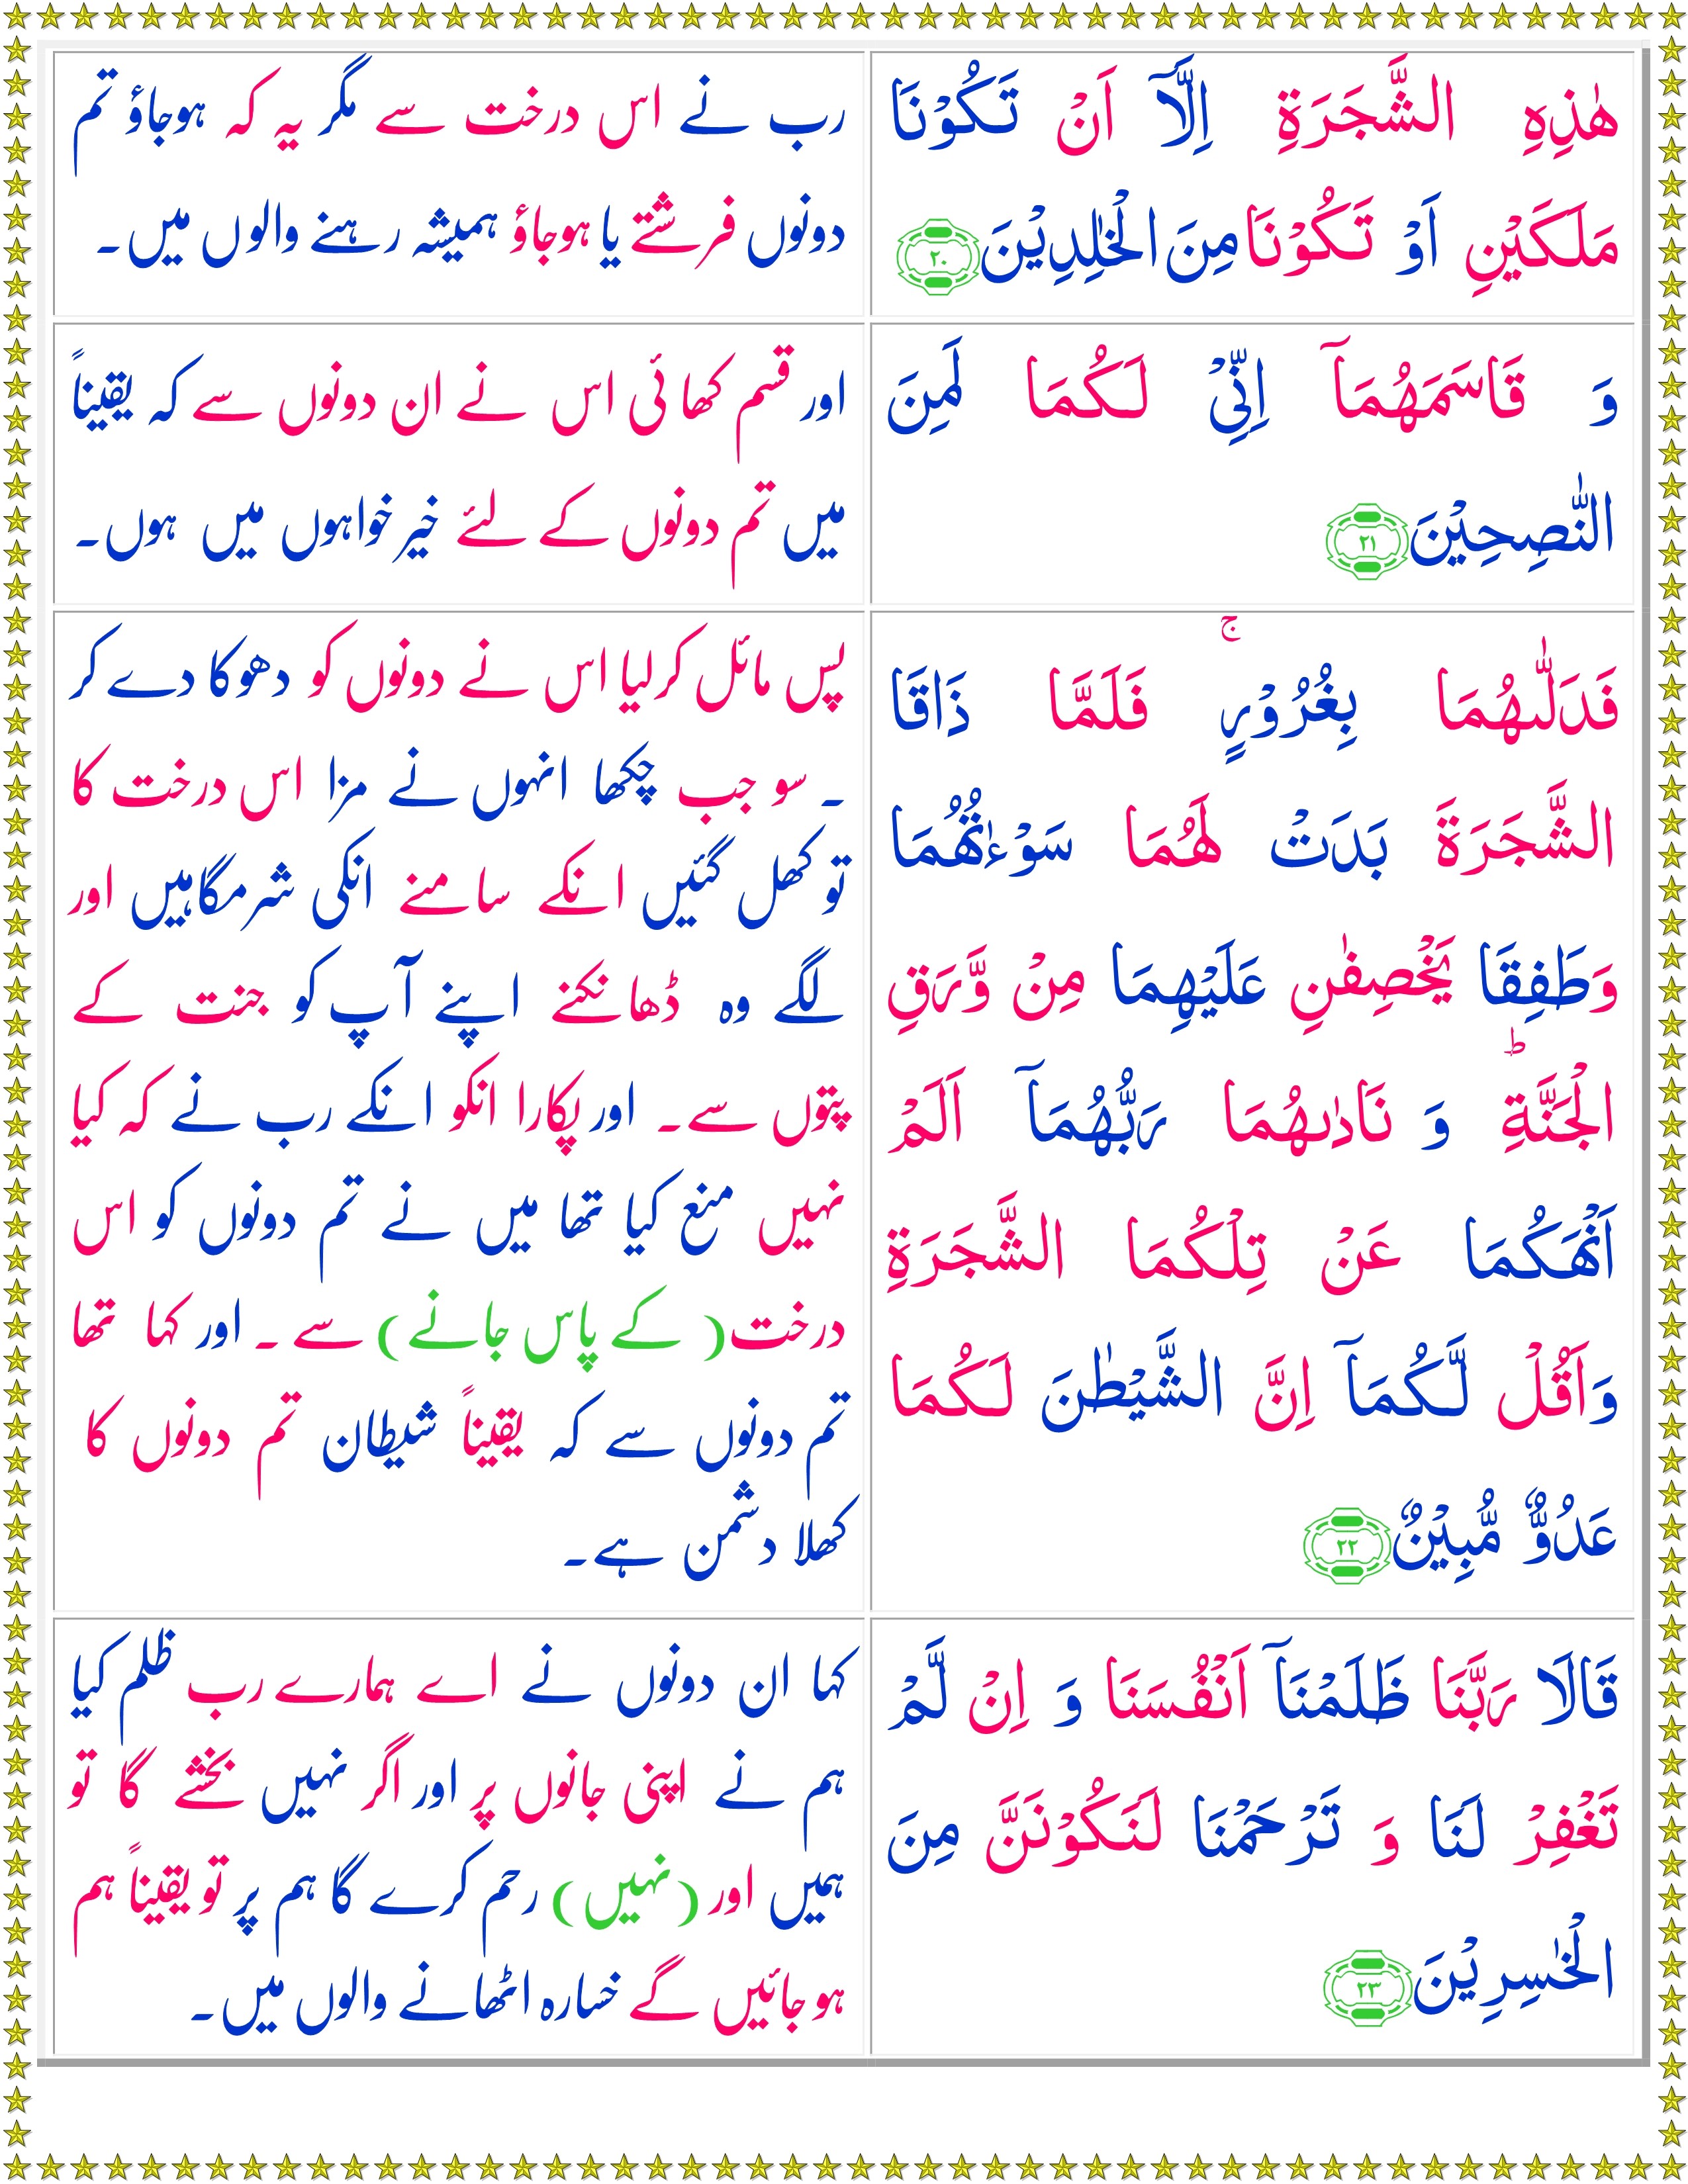 هٰذِهِ الشَّجَرَةِ اِلَّآ اَنْ تَكُوْنَا
مَلَكَيْنِ اَوْ تَكُوْنَا مِنَ الْخٰلِدِيْنَ ٢٠
رب نے اس درخت سے مگر یہ کہ ہوجاؤ تم
دونوں فرشتے یا ہوجاؤ ہمیشہ رہنے والوں میں۔
وَ قَاسَمَهُمَآ اِنِّىْ لَـكُمَا لَمِنَ
النّٰصِحِيْنَ ٢١
اور قسم کھائی اس نے ان دونوں سے کہ یقیناً
میں تم دونوں کے لئے خیر خواہوں میں ہوں۔
فَدَلّٰٮهُمَا بِغُرُوْرٍ‌ ۚ فَلَمَّا ذَاقَا
الشَّجَرَةَ بَدَتْ لَهُمَا سَوْءٰتُهُمَا
وَطَفِقَا يَخْصِفٰنِ عَلَيْهِمَا مِنْ وَّرَقِ
الْجَـنَّةِ‌ ؕ وَ نَادٰٮهُمَا رَبُّهُمَآ اَلَمْ
اَنْهَكُمَا عَنْ تِلْكُمَا الشَّجَرَةِ
وَاَقُلْ لَّـكُمَآ اِنَّ الشَّيْطٰنَ لَـكُمَا
عَدُوٌّ مُّبِيْنٌ ٢٢
پس مائل کرلیا اس نے دونوں کو دھوکا دے کر
۔ سو جب چکھا انہوں نے مزا اس درخت کا
تو کھل گئیں انکے سامنے انکی شرمگاہیں اور
لگے وہ ڈھانکنے اپنے آپ کو جنت کے
پتوں سے۔ اور پکارا انکو انکے رب نے کہ کیا
نہیں منع کیا تھا میں نے تم دونوں کو اس
درخت( کے پاس جانے) سے ۔ اور کہا تھا
تم دونوں سے کہ یقیناً شیطان تم دونوں کا
کھلا دشمن ہے۔
قَالَا رَبَّنَا ظَلَمْنَآ اَنْفُسَنَا وَ اِنْ لَّمْ
تَغْفِرْ لَـنَا وَ تَرْحَمْنَا لَـنَكُوْنَنَّ مِنَ
الْخٰسِرِيْنَ ٢٣
کہا ان دونوں نے اے ہمارے رب ظلم کیا
ہم نے اپنی جانوں پر اور اگر نہیں بخشے گا تو
ہمیں اور (نہیں) رحم کرے گا ہم پر تو یقیناً ہم
ہوجائیں گے خسارہ اٹھانے والوں میں۔